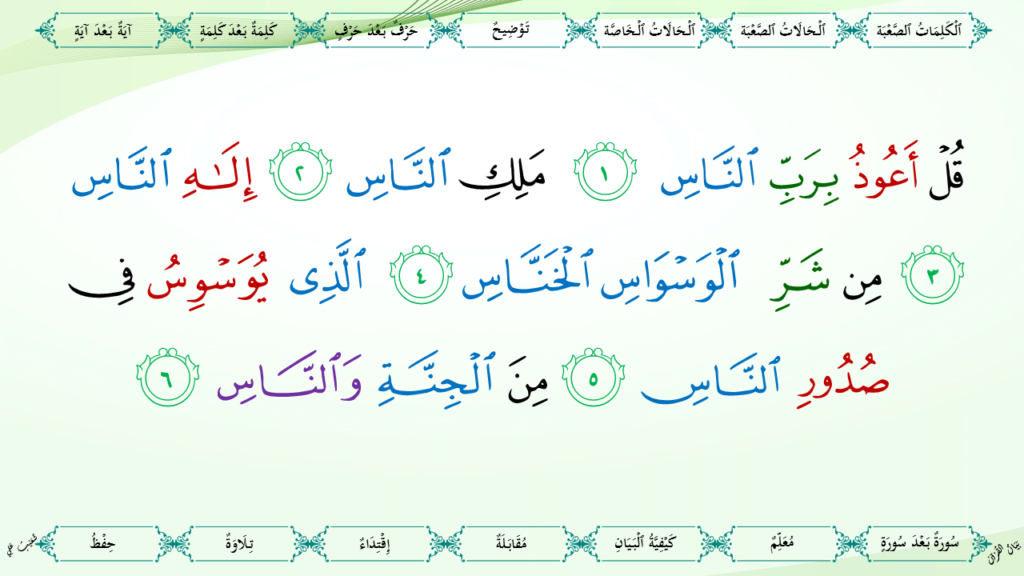 ٱلْكَلِمَاتُ ٱلصَّعْبَة ٱلْحَالَاتُ ٱلصَّعْبَة ٱلْحَالَاتُ ٱلْخَاصَّة تَوْضِيحٌ حَرْفٌ بَعْدَ حَرْفٍ كَلِمَةٌ بَعْدَ كَلِمَةٍ آيَةٌ بَعْدَ آيَةٍ
قُلْ أَعُوذُ بِرَبِّ ٱلنَّاسِ ١ مَلِكِ ٱلنَّاسِ ٢ إِلَـٰهِ ٱلنَّاسِ
٣ مِن شَرِّ ٱلْوَسْوَاسِ ٱلْخَنَّاسِ ٤ ٱلَّذِى يُوَسْوِسُ فِى
صُدُورِ ٱلنَّاسِ ٥ مِنَ ٱلْجِنَّةِ وَٱلنَّاسِ ٦
سُورَةٌ بَعْدَ سُورَةٍ مُعَلِّمٌ كَيْفِيَّةُ ٱلْبَيَانِ مُقَابَلَةٌ إِقْتِدَاءٌ تِلَاوَةٌ حِفْظُ